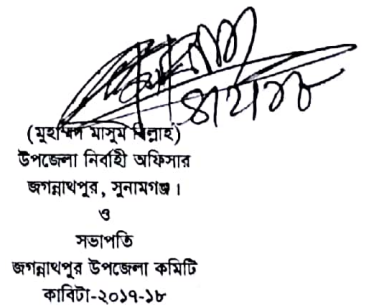 (মুহাম্মদ মাসুম বিল্লাহ)
উপজেলা নির্বাহী অফিসার
জগন্নাথপুর, সুনামগঞ্জ।
ও
সভাপতি
জগন্নাথপুর উপজেলা কমিটি
কাবিটা-২০১৭-১৮